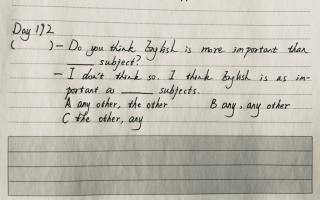 Day 192
( ) – Do you think English is more important than
_____ subject?
– I don't think so. I think English is as im-
portant as _____ subjects.
A any other, the other B any, any other
C the other, any